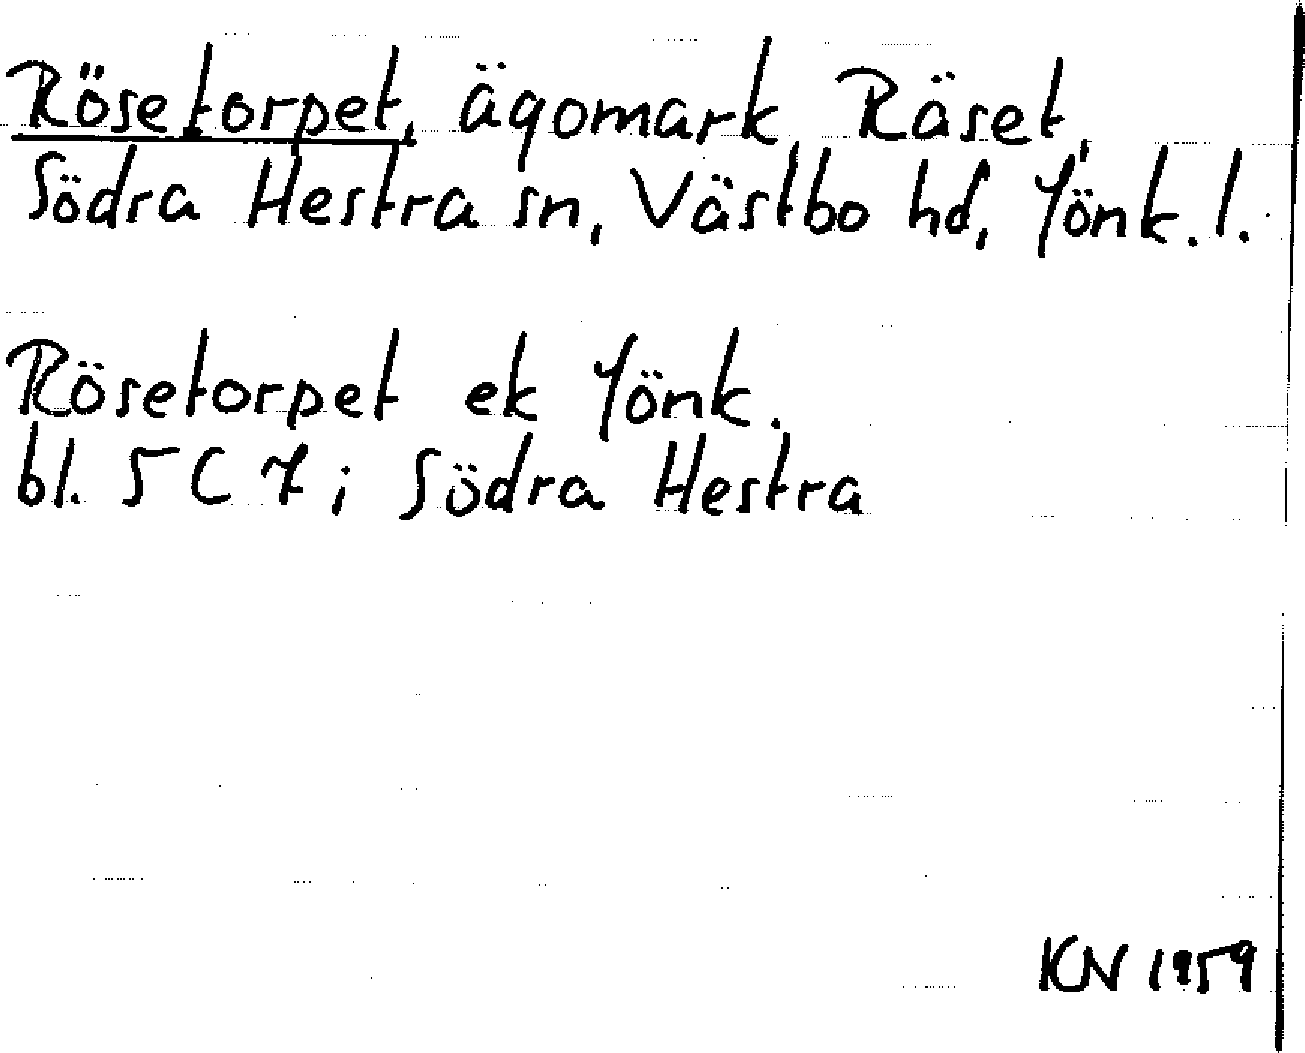 Rösetorpet, ägomark, Räset,
Södra Hestra sn, Västbo hd, Jönk. l.
Rösetorpet ek Jönk.
bl. 5 C 7 i Södra Hestra
KN 1959